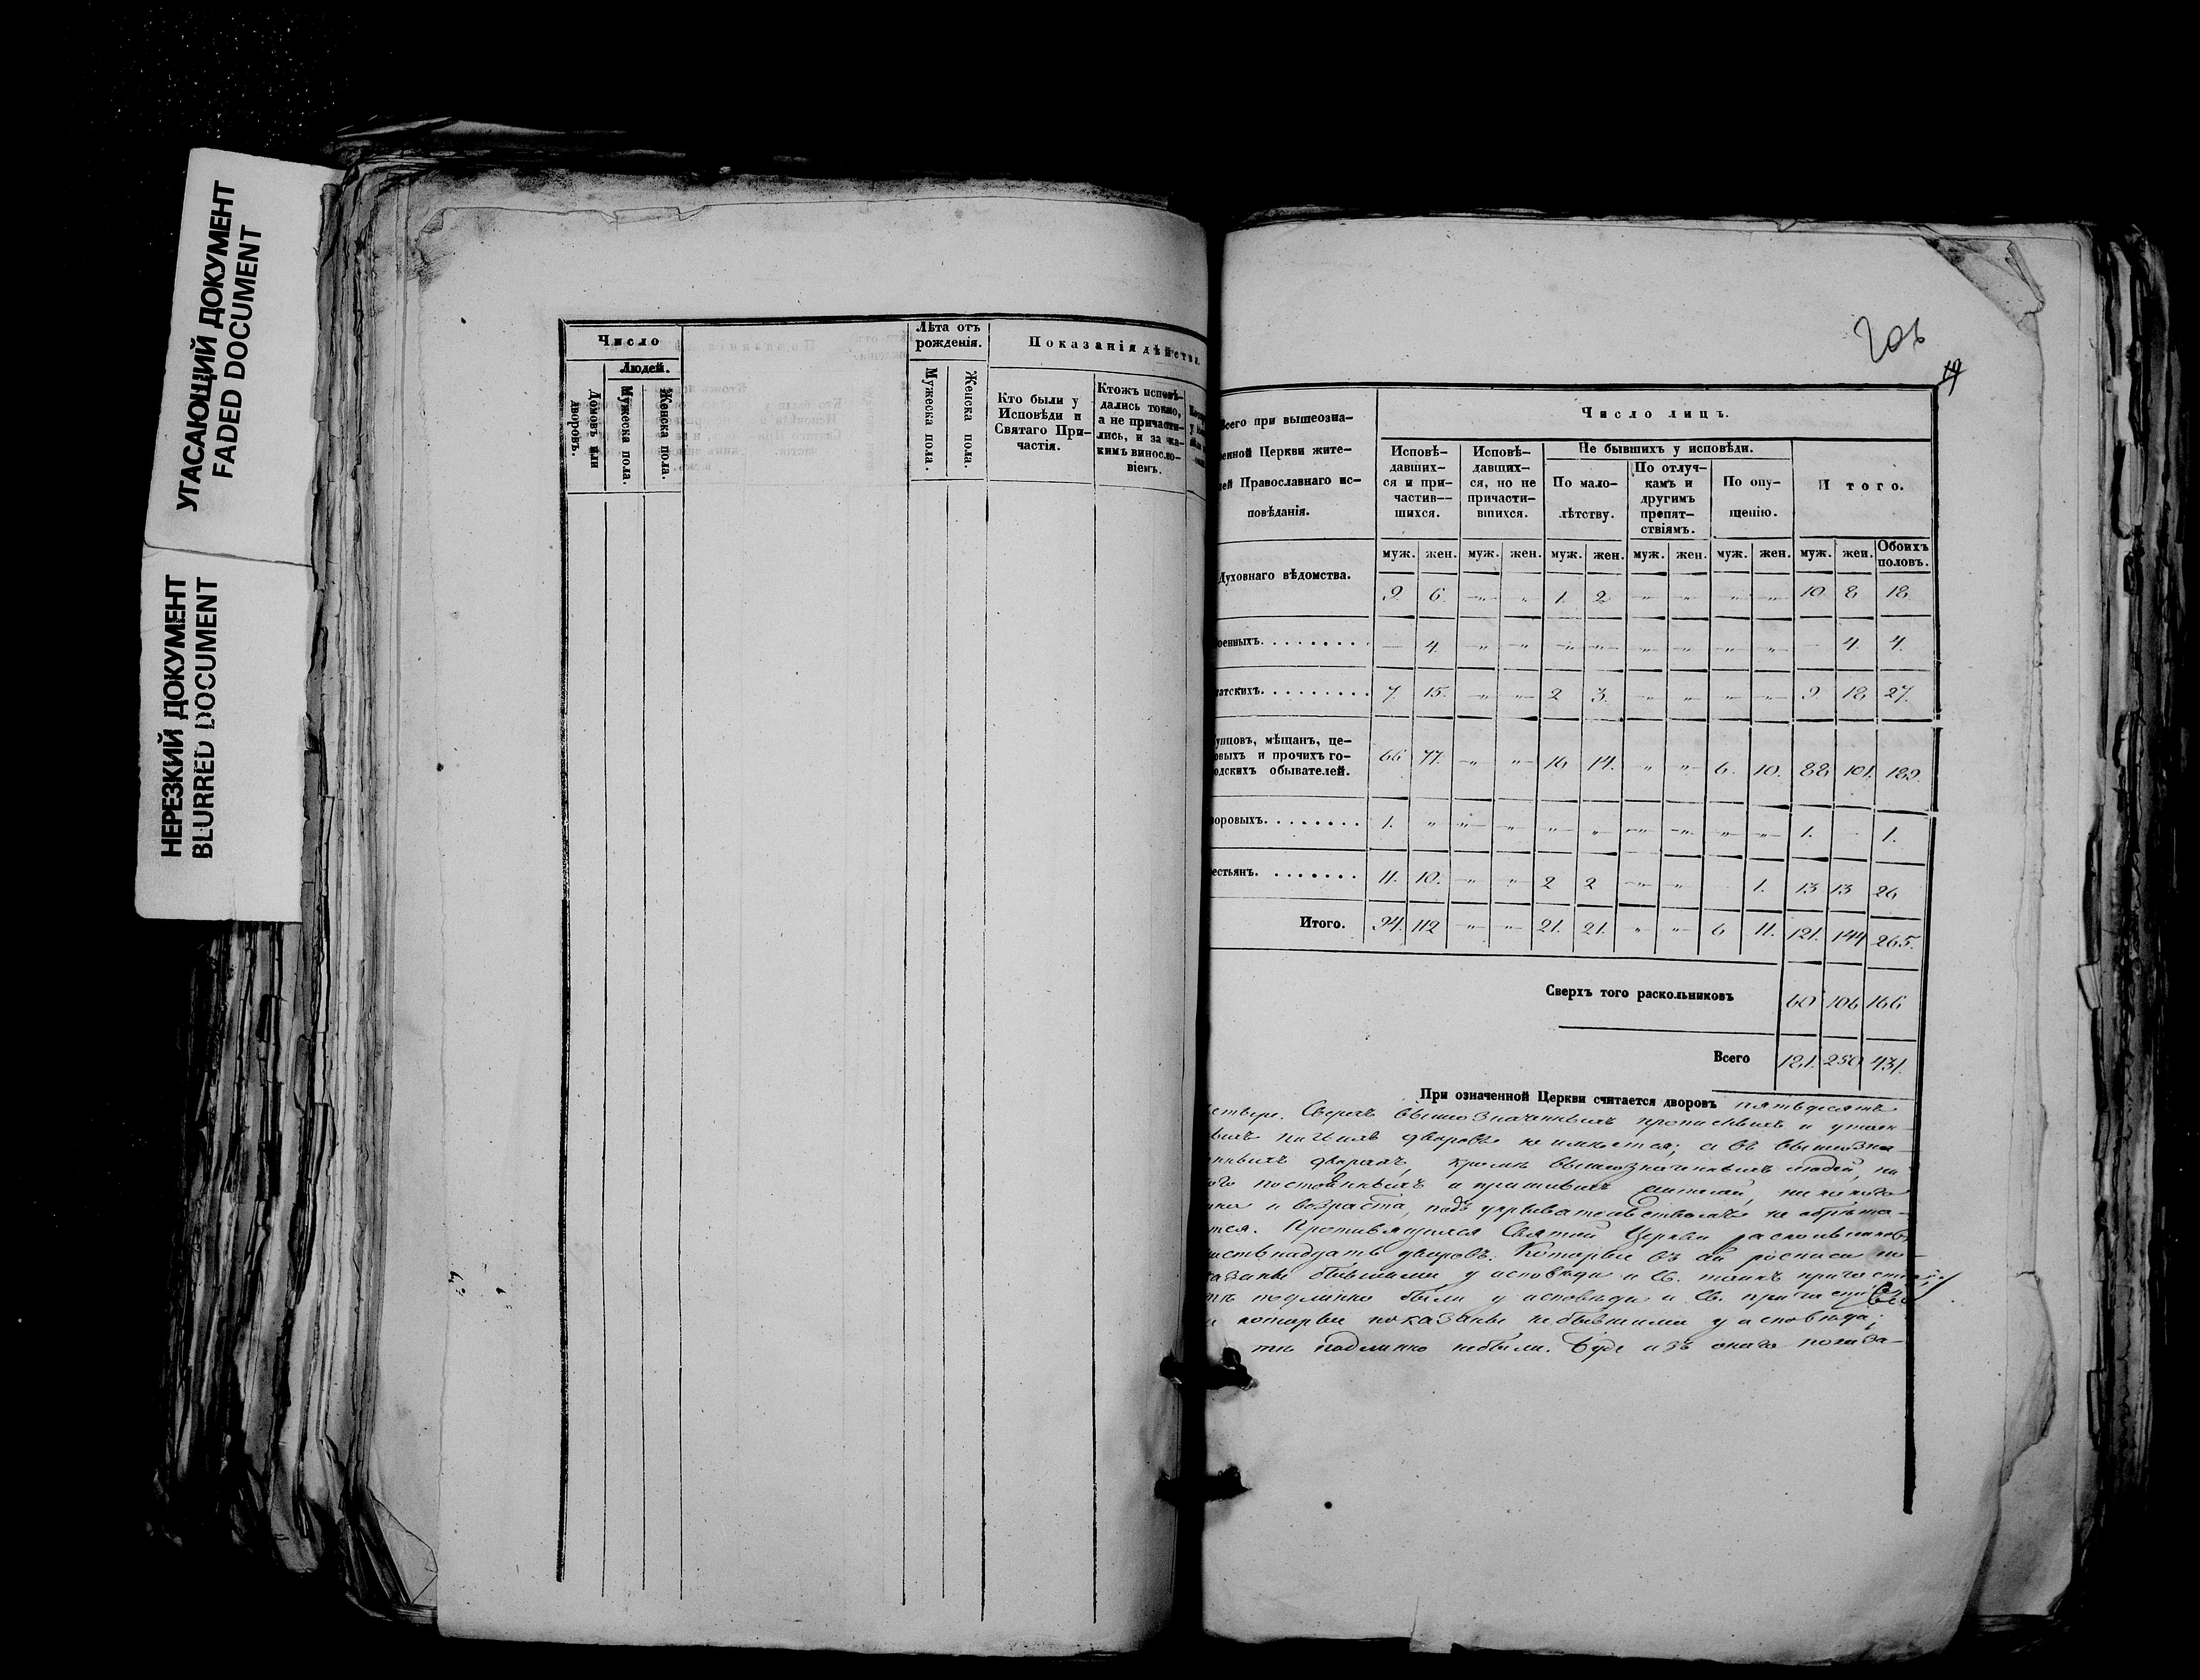 УГАСАЮЩИЙ ДОКУМЕНТ
FADED DOCUMENT
НЕРЕЗКИЙ ДОКУМЕНТ
BLURRED DOCUMENT
Число
Людей.
Домовъ или дворовъ.
Мужеска пола.
Женска пола.
Лѣта отъ рожденія.
Мужеска пола.
Женска пола.
Показанія дѣйств
Кто были у
Исповѣди и
Святаго При-
частія.
Ктожъ исповѣ-
дались токмо,
а не причасти-
лись, и за ка-
кимъ винословіемъ.
19
Всего при вышеозна-
енной Церкви жите-
лей Православнаго ис-
повѣданія.
Число лицъ.
Исповѣ-
давших-
ся и при-
частив-
шихся.
Исповѣ-
давших-
ся, но не
причасти-
вшихся.
Не бывшихъ у исповѣди.
По мало-
лѣтству.
По отлуч-
камъ и
другимъ
препят-
ствіямъ.
По опу-
щенію.
Итого.
муж. жен. муж. жен. муж. жен. муж. жен. муж. жен. муж. жен. Обоихъ половъ.
Духовнаго вѣдомства. 9. 6. -„- „ 1. 2 -„- -„- „ -„- 10 8 18
оенныхъ. — 4. -„- -„- -„- -„- -„- -„- -„- -„- - 4. 4.
татскихъ. 7. 15. -„- -„- 2 3. -„- -„- -„- -„- 9. 18 27.
упцовъ, мѣщанъ, це-
овыхъ и прочихъ го-
одскихъ обывателей. 66 77. -„- -„- 16 14. „ -„- 6. 10. 88 101. 189.
воровыхъ. 1. „ -„- -„- „ „ -„- -„- -„- -„- 1. - 1.
естьянъ. 11. 10. -„- -„- 2 2 -„- -„- 1. 13 13 26
Итого. 94. 112 -„- -„- 21. 21. „ -„- 6 11. 121. 144 265.
Сверхъ того раскольниковъ 60 106 166
Всего 181. 250 431.
При означенной Церкви считается дворовъ пятьдесятъ
етыре. Сверхъ вышеозначенныхъ прописныхъ и утаен-
дворовъ не имѣется; а въ вышеозна-
нныхъ дворахъ, кромѣ вышеозначенныхъ людей, ни
ого постоянныхъ и пришлыхъ жителей, никакого
и возраста, подъ укрывательствомъ не обрѣта-
тся. Противящихся Святой Церкви раскольниковъ
естьнадцать дворовъ. Которые въ сей росписи по-
казаны бывшими у исповѣди и Св. таинъ причастія,
тѣ подлинно были у исповѣди и Св. причастія;
и которые показаны небывшими у исповѣди,
тѣ подлинно небыли. Буде изъ онаго показа-